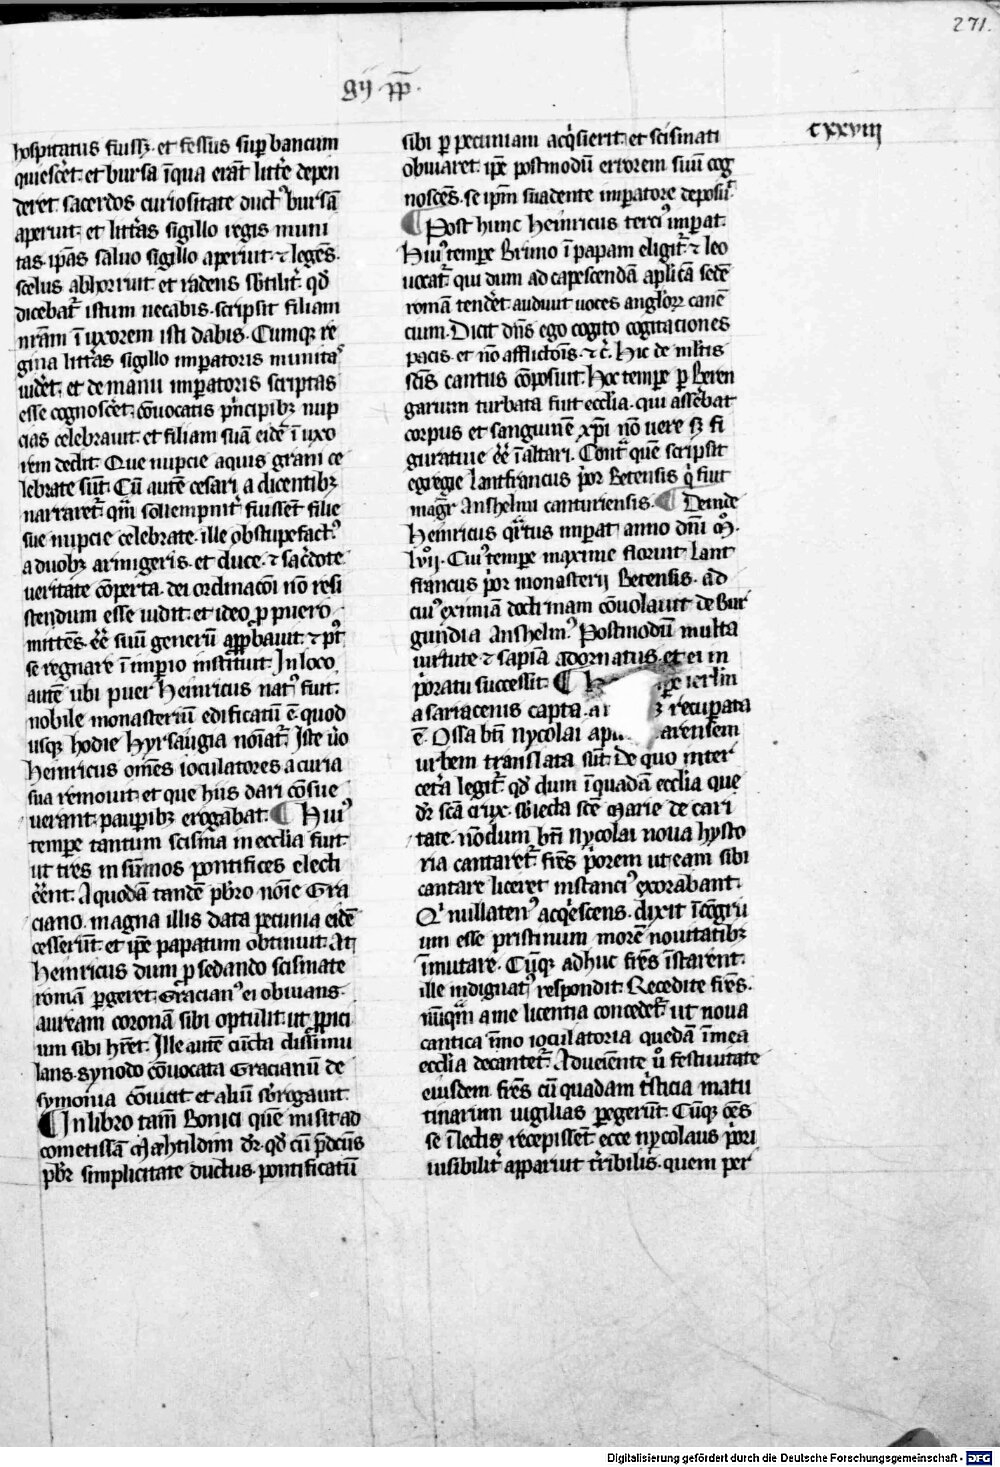 271.
gij . pp̄ .
cxxviij
hospitatus fuisset et fessus sup bancum
quiesc̄et et bursa ī qua erāt litt̄e depen
deret sacerdos curiositate duct⁹ bursā
aperuit et litt̄as sigillo regis muni
tas ip̄as saluo sigillo aperuit ⁊ legēs
scelus abhorruit et radens sb̄tilit̄ qd̄
dicebat̄ istum necabis scripsit filiam
nr̄am ī uxorem isti dabis . Cumqꝫ re
gina litt̄as sigillo imp̄atoris munitas
uid̄et et de manu imp̄atoris scriptas
esse cognosc̄et cōuocatis p̄ncipibꝫ nup
cias celebrauit et filiam suā eid̄e ī uxo
rem dedit Que nupcie aquis grani ce
lebrate sūt Cū autē cesari a dicentibꝫ
narraret̄ qm̄ sollempnit̄ fuissēt filie
sue nupcie celebrate ille obstupefact⁹
a duobꝫ armigeris et duce ⁊ sac̄dote
ueritate cōperta dei ordinacōi nō resi
stendum esse uidit et ideo p puero
mittēs eē suū generū app̄bauit ⁊ p⁹t
se regnare ī imperio instituit In loco
autē ubi puer Heinricus nat⁹ fuit
nobile monasteriū edificatū ē quod
usqꝫ hodie Hyrsaugia noīat̄ Iste ūo
Heinricus om̄es ioculatores a curia
sua remouit et que hiis dari cōsue
uerant paup̄ibꝫ erogabat Hui⁹
tempe tantum scisma in ecclia fuit
ut tres in sūmos pontifices electi
eēnt A quodā tandē pb̄ro noīe Gra
ciano magna illis data pecunia eidē
cesserūt et ip̄e papatum obtinuit At
Heinricus dum p sedando scismate
romā pgeret Gracian⁹ ei obuians
auream coronā sibi optulit ut p̄pici
um sibi hr̄et Ille autē cūcta dissimu
lans synodo cōuocata Gracianū de
symonia cōuicit et aliū sb̄rogauit
¶ In libro tam̄ Bonici quē misit ad
cometissā Mechtildim dr̄ qd̄ cū p̄dcūs
pb̄r simplicitate ductus pontificatū
sibi p pecuniam acq̄sierit et scismati
obuiaret ip̄e postmodū errorem suū cog
noscēs se ip̄m suadente imp̄atore deposuit
¶ Post hunc Heinricus terci⁹ imp̄at
Hui⁹ tempe Bruno ī papam eligit̄ ⁊ leo
uocat̄ qui dum ad capescendā aplicā sedē
romā tend̄et audiuit uoces anglorꝫ canē
cium . Dicit dn̄s ego cogito cogitaciones
pacis et nō afflictiōis ⁊ c̄ Hic de ml̄tis
scīs cantus cōposuit Hoc tempe p Beren
garium turbata fuit ecclia qui assēbat
corpus et sanguinē xp̄i nō uere sꝫ fi
guratiue eē ī altari . Cont̄ quē scripsit
egregie lantfrancus p̄or Betensis q̄ fuit
magr̄ Anshelmi canturiensis ¶ Deinde
Heinricus q̄rtus imp̄at anno dn̄i M̊
lvij Cui⁹ tempe maxime floruit Lant
francus p̄or monasterij Betensis ad
cui⁹ eximiā doctrinam cōuolauit de Bur
gundia Anshelm⁹ Postmodū multa
uirtute ⁊ sap̄ia adornatus et ei in
p̄oratu successit ¶ H pe ierl̄m
a sarracenis capta recup̄ata
ē Ossa bt̄i Nycolai apu arensem
urbem translata sūt De quo inter
cet̄a legit̄ qd̄ dum ī quadā ecclia que
dr̄ scā crux sb̄iecta scē Marie de cari
tate nōdum bt̄i Nycolai noua hysto
ria cantaret̄ frēs p̄orem ut eam sibi
cantare liceret instanci⁹ exorabant
Qī nullaten⁹ acq̄escens dixit īcōgru
um esse pristinum morē nouitatibꝫ
īmutare Cūqꝫ adhuc frēs īstarent
ille indignat⁹ respondit Recedite frēs
nūq̄m a me licentia concedet̄ ut noua
cantica īmo ioculatoria quedā ī mea
ecclia decantet̄ Adueniente ū̊ festiuitate
eiusdem frēs cū quadam t̄sticia matu
tinarum uigilias pegerūt Cūqꝫ oēs
se ī lectis recepissēt ecce Nycolaus p̄ori
uisibilit̄ apparuit t̄ribilis quem per
Digitalisierung gefördert durch die Deutsche Forschungsgemeinschaft - DFG